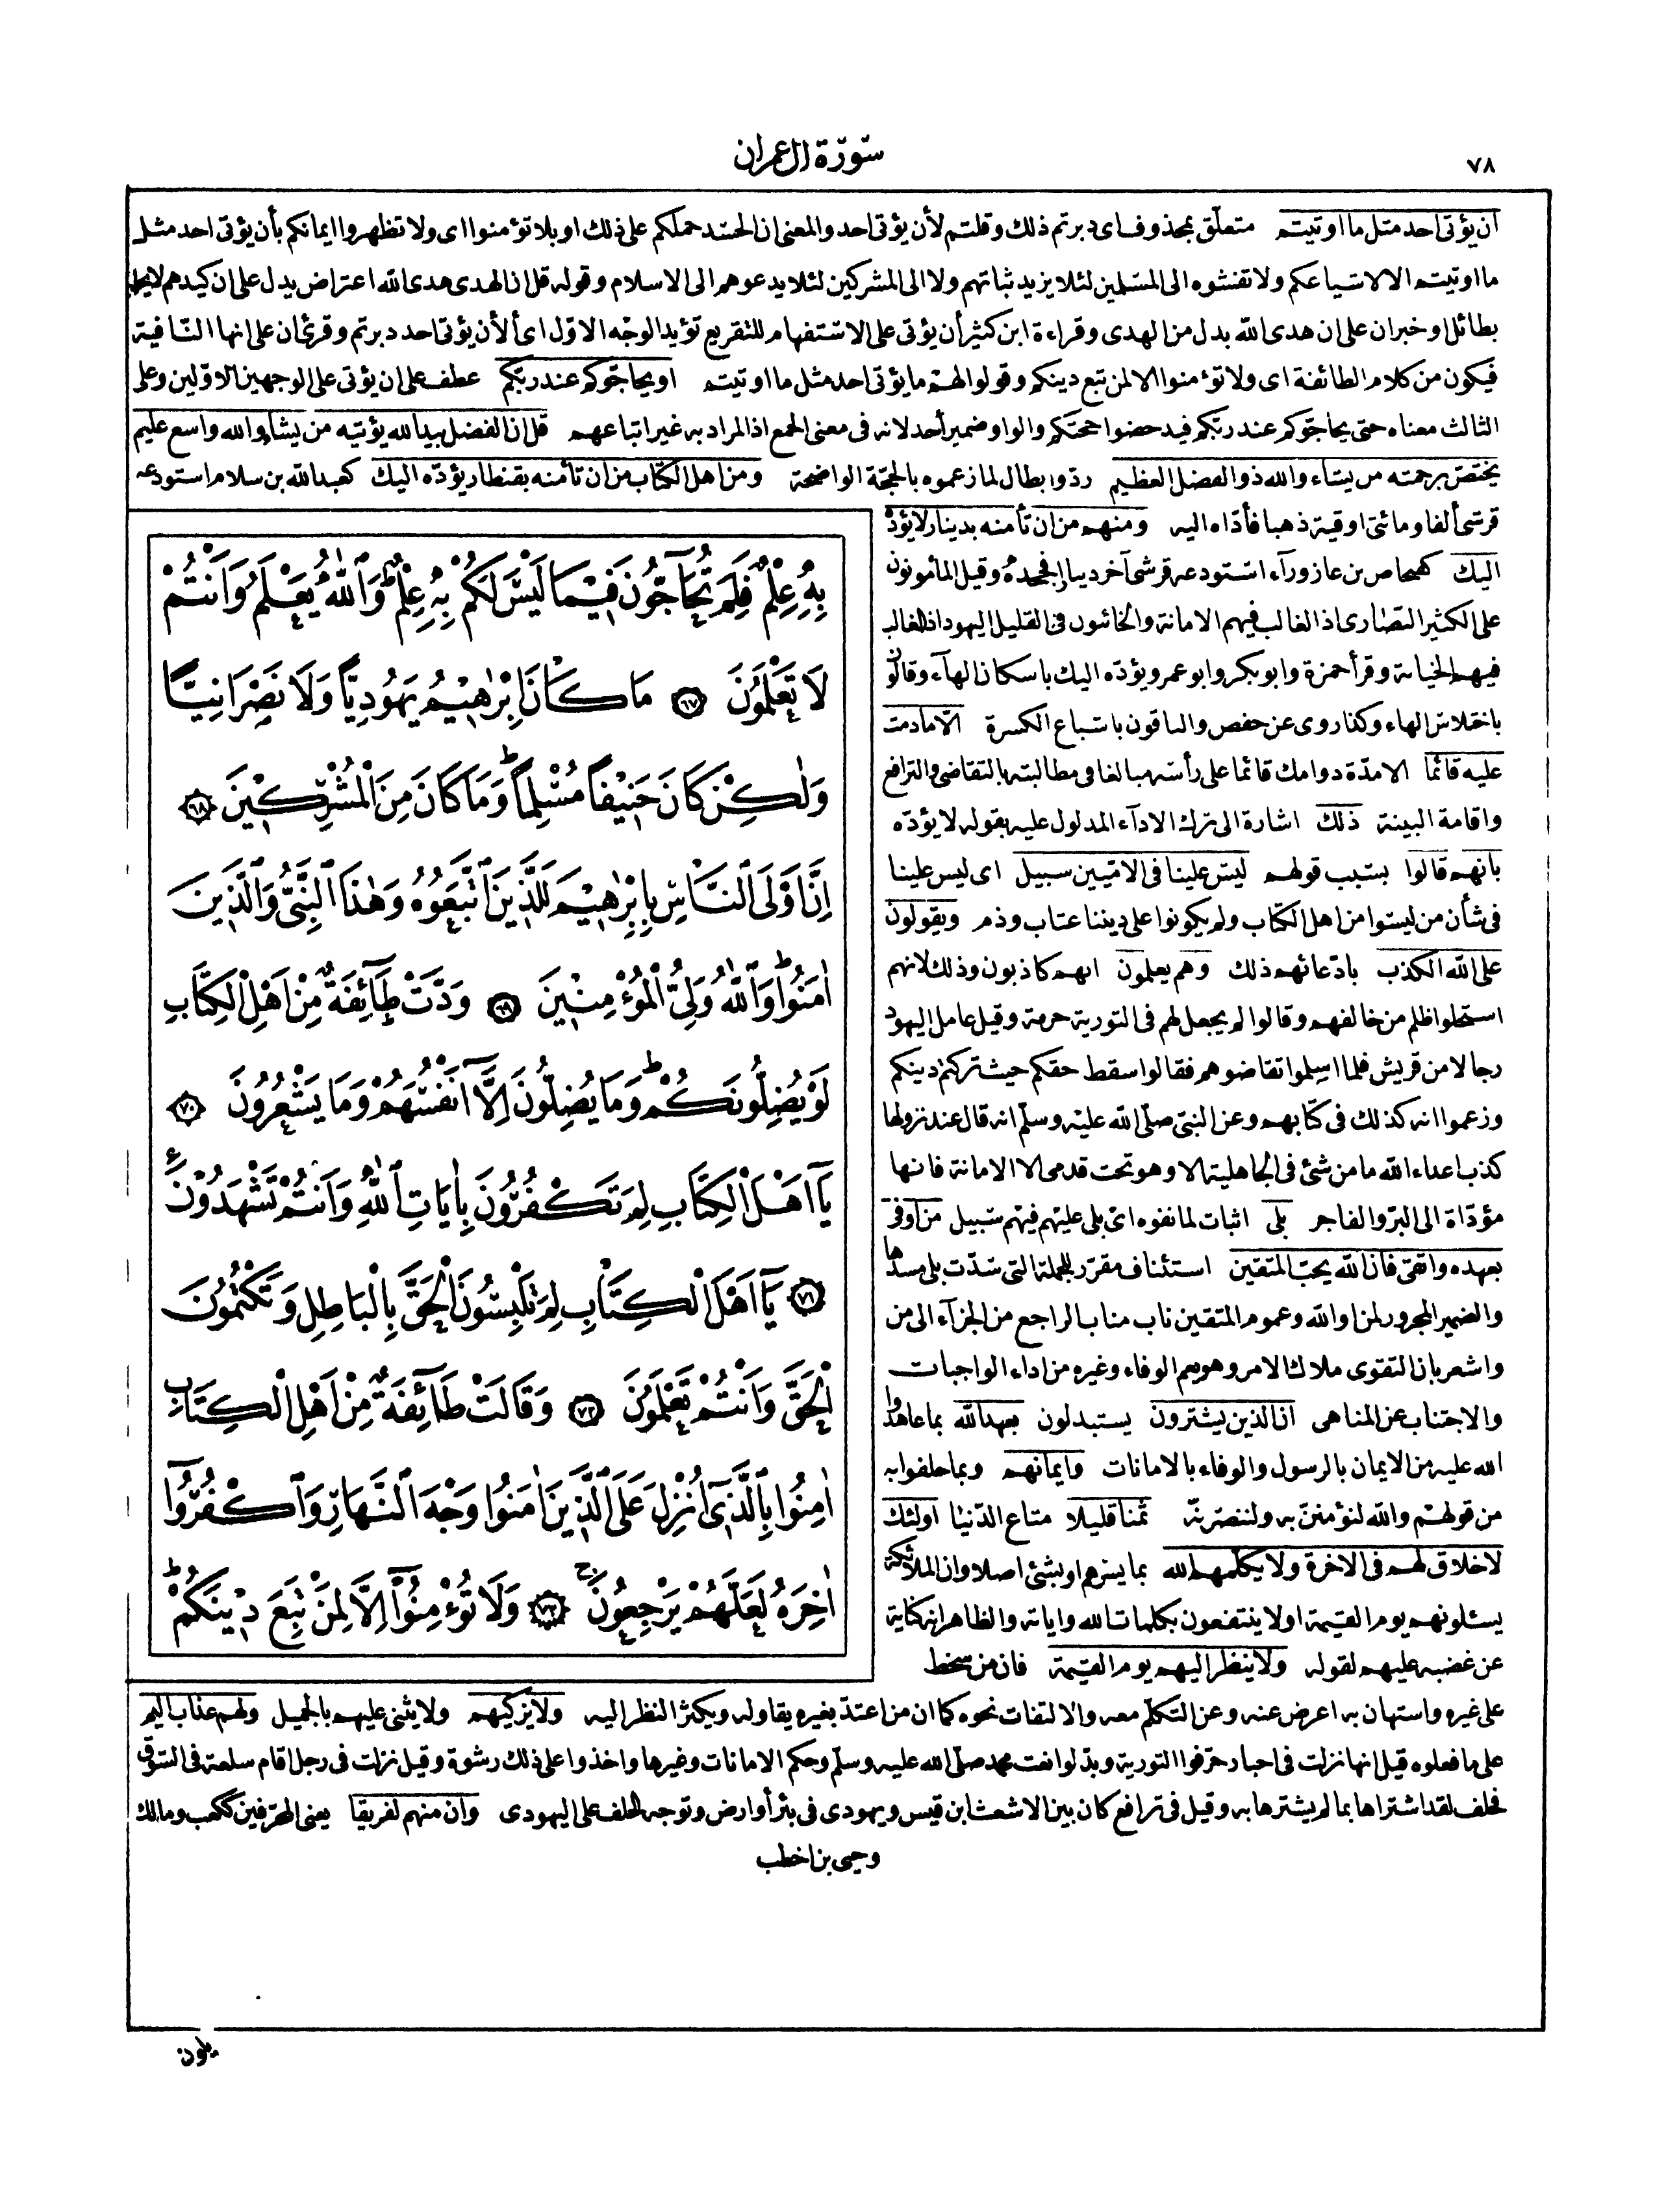 ٧٨
سورة آل عمران
ان يؤتى احد مثل ما اوتيتم متعلق بمحذوف اى دبرتم ذلك وقلتم لأن يؤتى احد والمعنى ان الحسد حملكم على ذلك او بلا تؤمنوا اى ولا تظهروا ايمانكم بأن يؤتى احد مثل
ما اوتيتم الا لاشياعكم ولا تفشوه الى المسلمين لئلا يزيد ثباتهم ولا الى المشركين لئلا يدعوهم الى الاسلام وقوله قل ان الهدى هدى الله اعتراض يدل على ان كيدهم لا يجدى
بطائل او خبر ان على ان هدى الله بدل من الهدى وقراءة ابن كثير أن يؤتى على الاستفهام للتقريع تؤيد الوجه الاول اى ألأن يؤتى احد دبرتم وقرئ ان على انها النافية
فيكون من كلام الطائفة اى ولا تؤمنوا الا لمن تبع دينكم وقولوا لهم ما يؤتى احد مثل ما اوتيتم او يحاجوكم عند ربكم عطف على ان يؤتى على الوجهين الاولين وعلى
الثالث معناه حتى يحاجوكم عند ربكم فيدحضوا حجتكم والواو ضمير أحد لانه فى معنى الجمع اذ المراد به غير اتباعهم قل ان الفضل بيد الله يؤتيه من يشاء والله واسع عليم
يختص برحمته من يشاء والله ذو الفضل العظيم رد وابطال لما زعموه بالحجة الواضحة ومن اهل الكتاب من ان تأمنه بقنطار يؤده اليك كعبد الله بن سلام استودعه
قرشى ألفا ومائتى اوقية ذهبا فأداه اليه ومنهم من ان تأمنه بدينار لا يؤده
اليك كفنحاص بن عازوراء استودعه قرشى آخر دينارا فجحده وقيل المأمونون
على الكثير النصارى اذ الغالب فيهم الامانة والخائنون فى القليل اليهود اذ الغالب
فيهم الخيانة وقرأ حمزة وابو بكر وابو عمرو يؤده اليك باسكان الهاء وقالون
باختلاس الهاء وكذا روى عن حفص والباقون باشباع الكسرة الا ما دمت
عليه قائما الا مدة دوامك قائما على رأسه مبالغا فى مطالبته بالتقاضى والترافع
واقامة البينة ذلك اشارة الى ترك الاداء المدلول عليه بقوله لا يؤده
بانهم قالوا بسبب قولهم ليس علينا فى الاميين سبيل اى ليس علينا
فى شأن من ليسوا من اهل الكتاب ولم يكونوا على ديننا عتاب وذم ويقولون
على الله الكذب بادعائهم ذلك وهم يعلمون انهم كاذبون وذلك لانهم
استحلوا ظلم من خالفهم وقالوا لم يجعل لهم فى التورية حرمة وقيل عامل اليهود
رجالا من قريش فلما اسلموا تقاضوهم فقالوا سقط حقكم حيث تركتم دينكم
وزعموا انه كذلك فى كتابهم وعن النبى صلى الله عليه وسلم انه قال عند نزولها
كذب اعداء الله ما من شئ فى الجاهلية الا وهو تحت قدمى الا الامانة فانها
مؤداة الى البر والفاجر بلى اثبات لما نفوه اى بلى عليهم فيهم سبيل من اوفى
بعهده واتقى فان الله يحب المتقين استئناف مقرر للجملة التى سدت بلى مسدها
والضمير المجرور لمن او لله وعموم المتقين ناب مناب الراجع من الجزاء الى من
واشعر بان التقوى ملاك الامر وهو يعم الوفاء وغيره من اداء الواجبات
والاجتناب عن المناهى ان الذين يشترون يستبدلون بعهد الله بما عاهدوا
الله عليه من الايمان بالرسول والوفاء بالامانات وايمانهم وبما حلفوا به
من قولهم والله لنؤمنن به ولننصرنه ثمنا قليلا متاع الدنيا اولئك
لا خلاق لهم فى الاخرة ولا يكلمهم الله بما يسرهم او بشئ اصلا وان الملائكة
يسئلونهم يوم القيمة او لا ينتفعون بكلمات الله واياته والظاهر انه كناية
عن غضبه عليهم لقوله ولا ينظر اليهم يوم القيمة فان من سخط
على غيره واستهان به اعرض عنه وعن التكلم معه والالتفات نحوه كما ان من اعتد بغيره يقاوله ويكثر النظر اليه ولا يزكيهم ولا يثنى عليهم بالجميل ولهم عذاب اليم
على ما فعلوه قيل انها نزلت فى احبار حرفوا التورية وبدلوا نعت محمد صلى الله عليه وسلم وحكم الامانات وغيرها واخذوا على ذلك رشوة وقيل نزلت فى رجل اقام سلعة فى السوق
فحلف لقد اشتراها بما لم يشترها به وقيل فى ترافع كان بين الاشعث ابن قيس ويهودى فى بئر أو ارض وتوجه الحلف على اليهودى وان منهم لفريقا يعنى المحرفين ككعب ومالك
وحيى بن اخطب
بِهٖ عِلْمٌ فَلِمَ تُحَآجُّونَ فِيمَا لَيْسَ لَكُمْ بِهٖ عِلْمٌ وَاللّٰهُ يَعْلَمُ وَاَنْتُمْ
لَا تَعْلَمُونَ ﴿٦٧﴾ مَا كَانَ اِبْرٰهِيمُ يَهُودِيًّا وَلَا نَصْرَانِيًّا
وَلٰكِنْ كَانَ حَنِيفًا مُسْلِمًا وَمَا كَانَ مِنَ الْمُشْرِكِينَ ﴿٦٨﴾
اِنَّ اَوْلَى النَّاسِ بِاِبْرٰهِيمَ لَلَّذِينَ اتَّبَعُوهُ وَهٰذَا النَّبِىُّ وَالَّذِينَ
اٰمَنُوا وَاللّٰهُ وَلِىُّ الْمُؤْمِنِينَ ﴿٦٩﴾ وَدَّتْ طَآئِفَةٌ مِنْ اَهْلِ الْكِتَابِ
لَوْ يُضِلُّونَكُمْ وَمَا يُضِلُّونَ اِلَّآ اَنْفُسَهُمْ وَمَا يَشْعُرُونَ ﴿٧٠﴾
يَآ اَهْلَ الْكِتَابِ لِمَ تَكْفُرُونَ بِاٰيَاتِ اللّٰهِ وَاَنْتُمْ تَشْهَدُونَ
﴿٧١﴾ يَآ اَهْلَ الْكِتَابِ لِمَ تَلْبِسُونَ الْحَقَّ بِالْبَاطِلِ وَتَكْتُمُونَ
الْحَقَّ وَاَنْتُمْ تَعْلَمُونَ ﴿٧٢﴾ وَقَالَتْ طَآئِفَةٌ مِنْ اَهْلِ الْكِتَابِ
اٰمِنُوا بِالَّذِىٓ اُنْزِلَ عَلَى الَّذِينَ اٰمَنُوا وَجْهَ النَّهَارِ وَاكْفُرُوٓا
اٰخِرَهُ لَعَلَّهُمْ يَرْجِعُونَ ﴿٧٣﴾ وَلَا تُؤْمِنُوٓا اِلَّا لِمَنْ تَبِعَ دِينَكُمْ
يلون